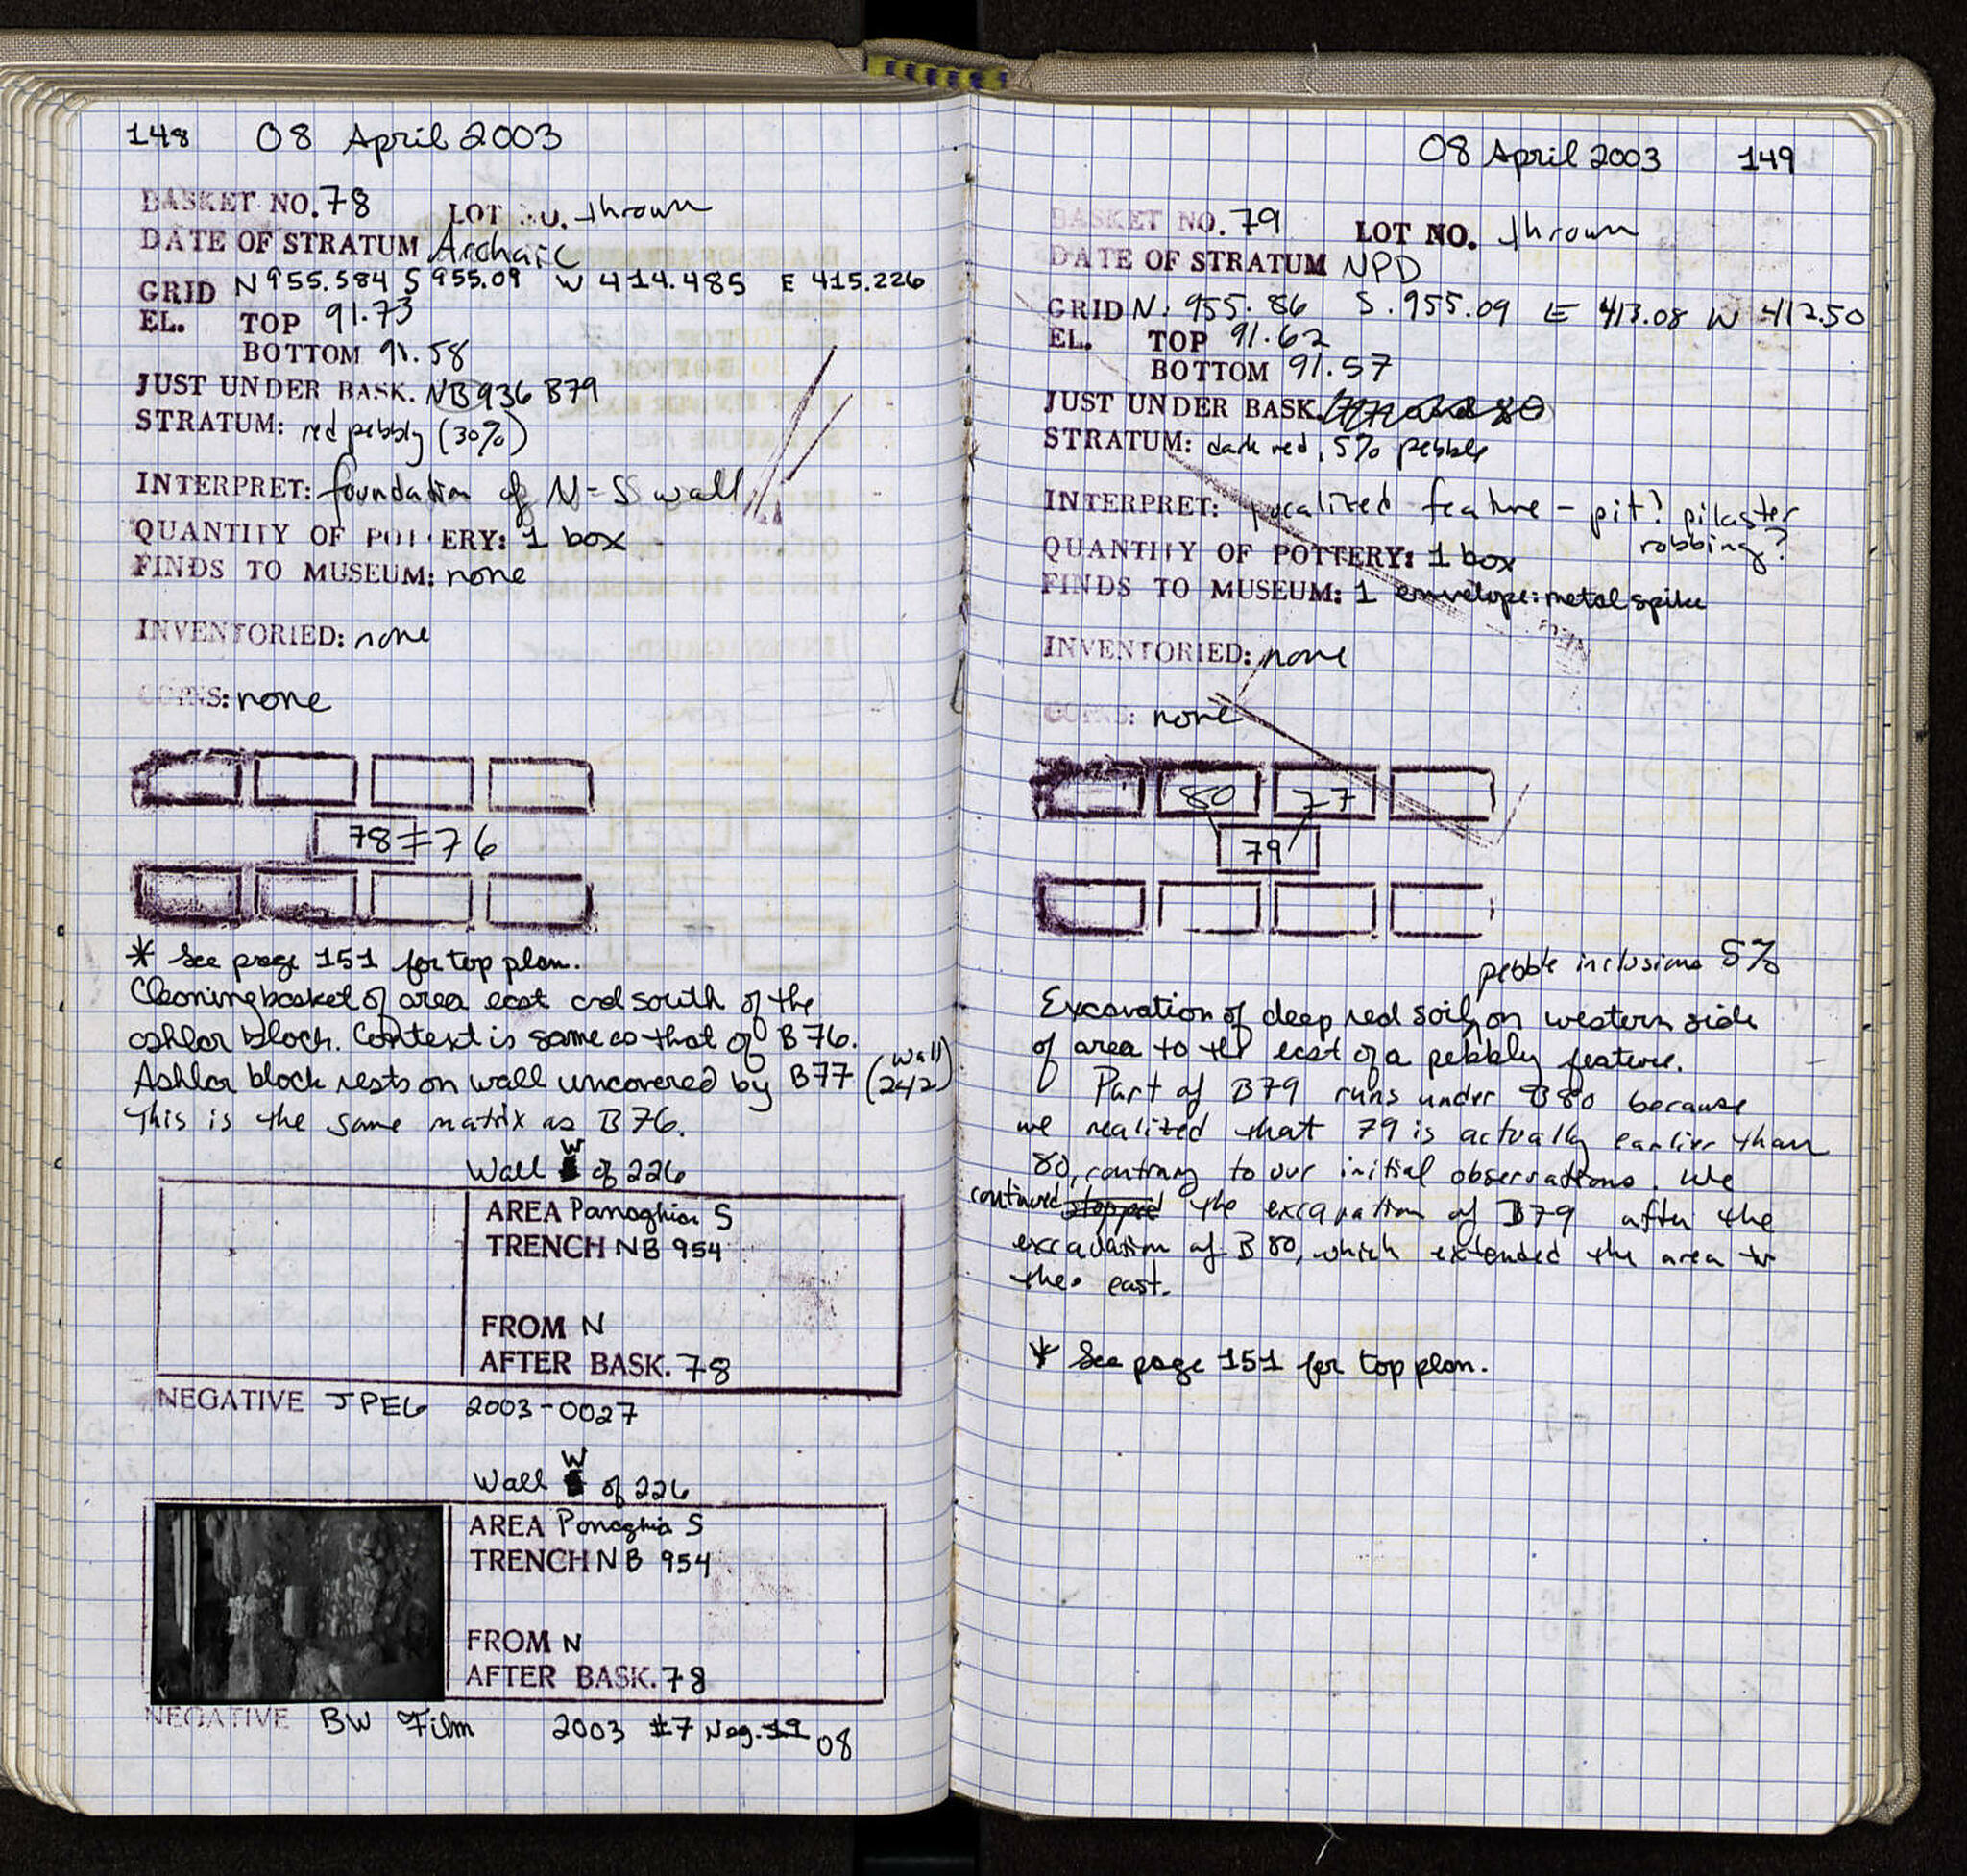 148 08 April 2003
BASKET NO. 78 LOT NO. thrown
DATE OF STRATUM Archaic
GRID N 955.584 S 955.09 W 414.485 E 415.226
EL. TOP 91.73
BOTTOM 91.58
JUST UNDER BASK. NB 936 B79
STRATUM: red pebbly (30%)
INTERPRET: foundation of N-S wall
QUANTITY OF POTTERY: 1 box
FINDS TO MUSEUM: none
INVENTORIED: none
COINS: none
78 = 76
* See page 151 for top plan.
Cleaning basket of area east and south of the
ashlar block. Context is same as that of B 76.
Ashlar block rests on wall uncovered by B77 (wall 242)
This is the same matrix as B76.
Wall W of 226
AREA Panaghia S
TRENCH NB 954
FROM N
AFTER BASK. 78
NEGATIVE JPEG 2003-0027
Wall W of 226
AREA Panaghia S
TRENCH NB 954
FROM N
AFTER BASK. 78
NEGATIVE BW Film 2003 #7 Neg. 11 08
08 April 2003 149
BASKET NO. 79 LOT NO. thrown
DATE OF STRATUM NPD
GRID N. 955.86 S. 955.09 E 413.08 W 412.50
EL. TOP 91.62
BOTTOM 91.57
JUST UNDER BASK. 80
STRATUM: dark red, 5% pebble
INTERPRET: localized feature - pit? pilaster
robbing?
QUANTITY OF POTTERY: 1 box
FINDS TO MUSEUM: 1 envelope: metal spike
INVENTORIED: none
COINS: none
80 77
79
pebble inclusions 5%
Excavation of deep red soil, on western side
of area to the east of a pebbly feature.
Part of B79 runs under B80 because
we realized that 79 is actually earlier than
80, contrary to our initial observations. We
continued stopped the excavation of B79 after the
excavation of B80, which extended the area to
the east.
* See page 151 for top plan.